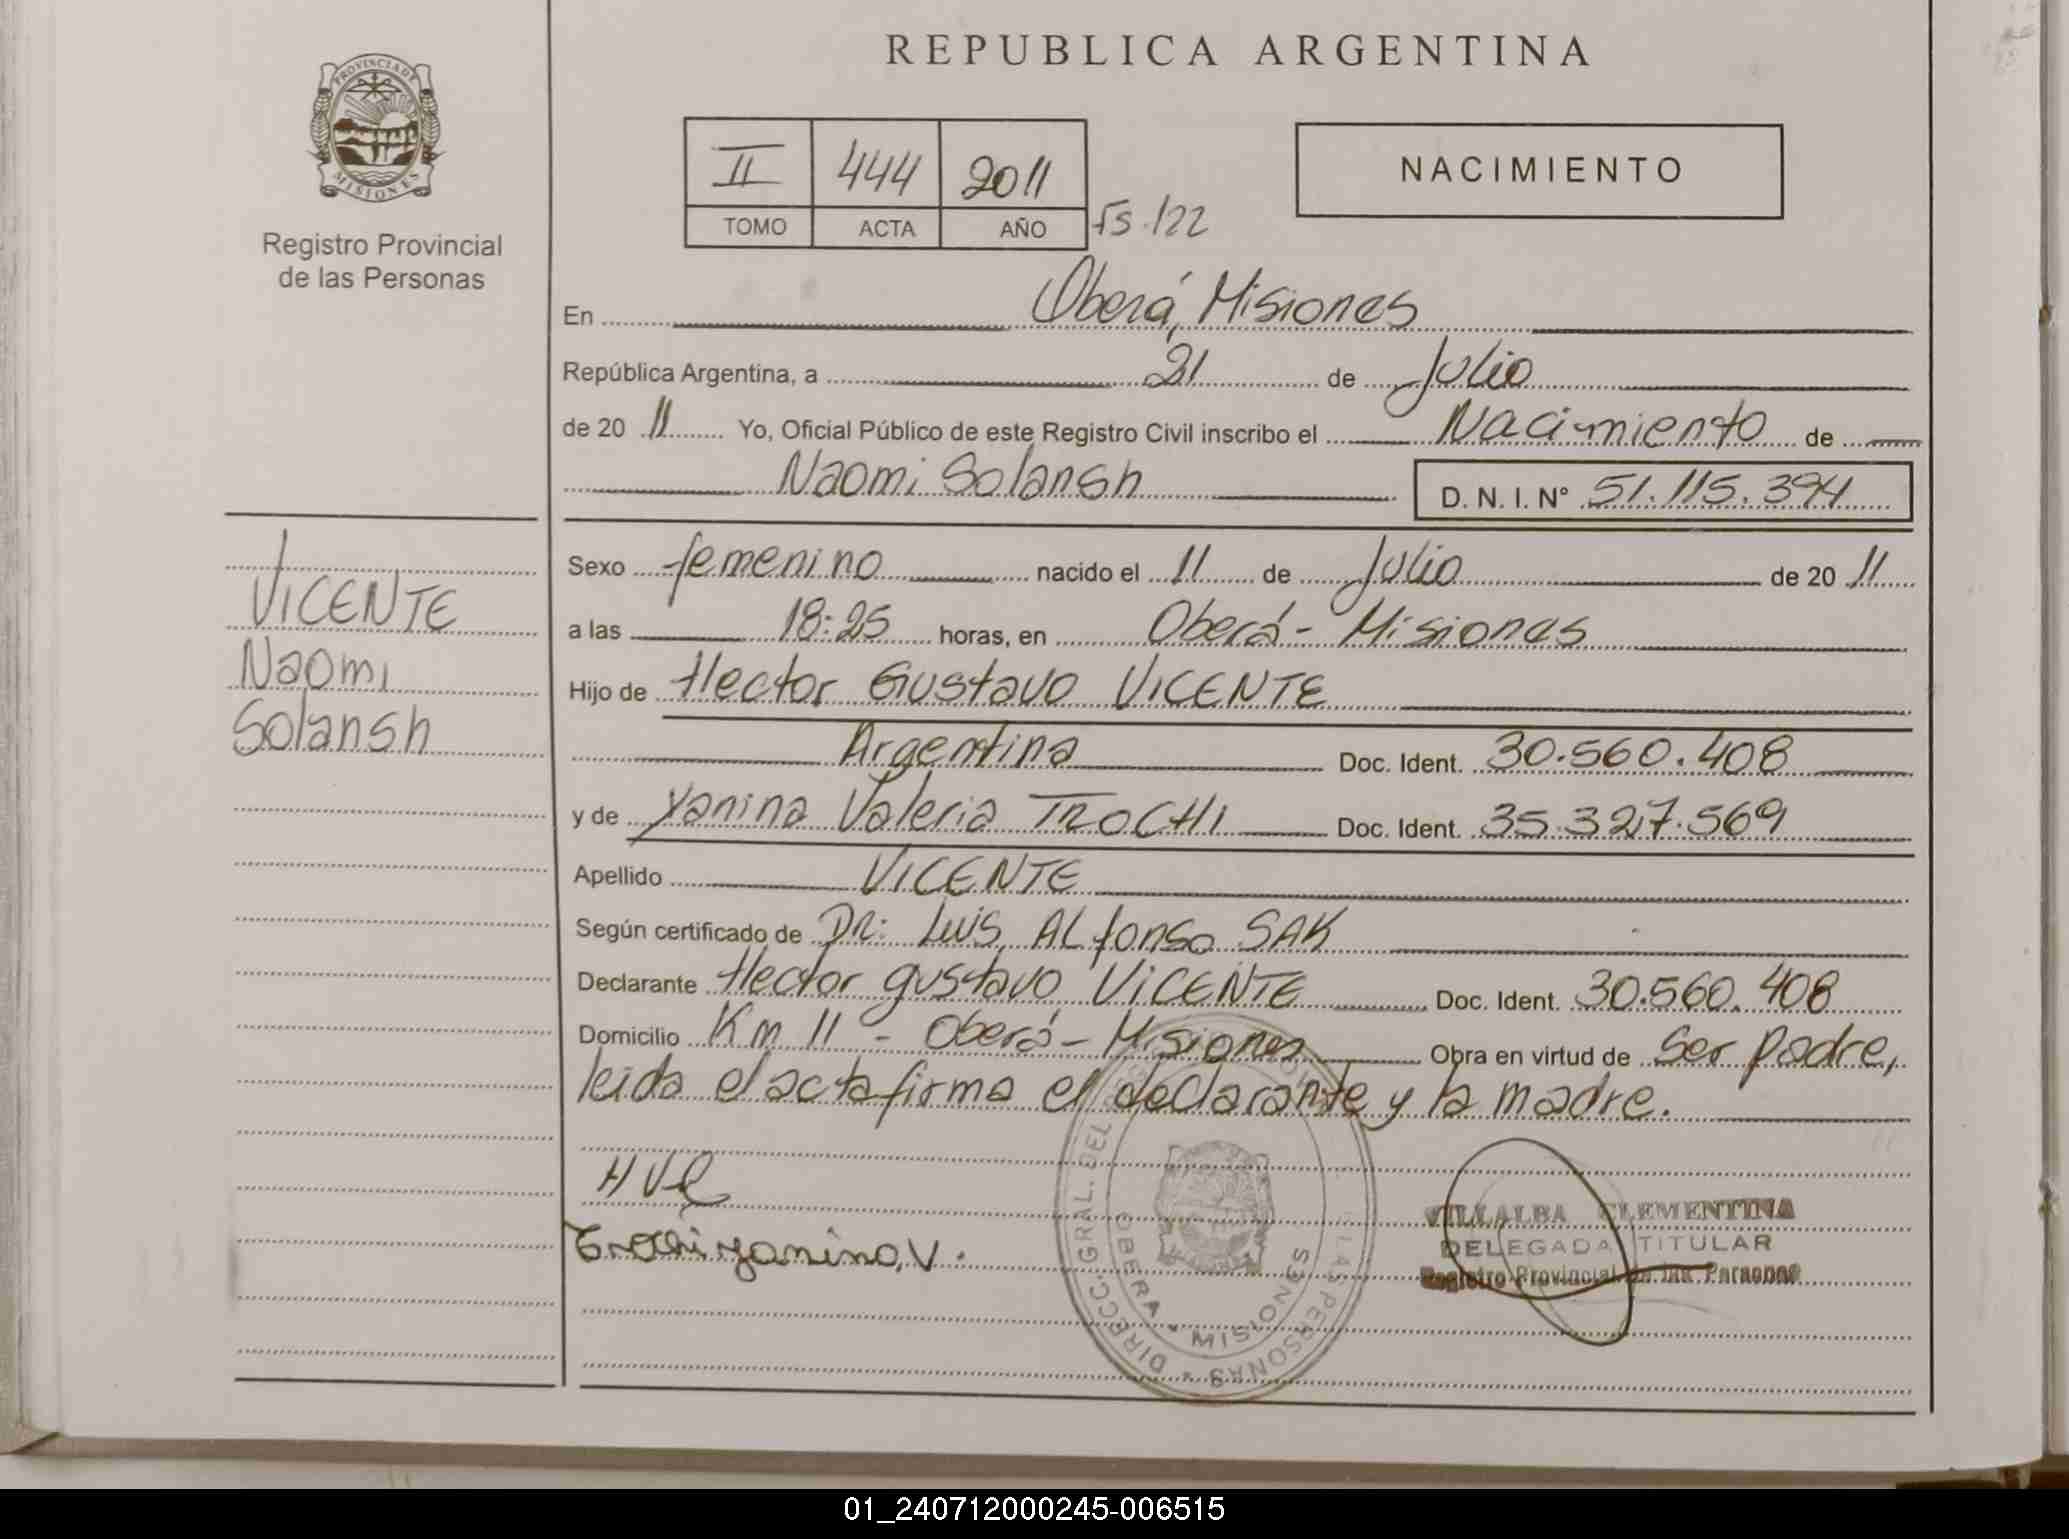 REPUBLICA ARGENTINA
PROVINCIA DE
MISIONES
Registro Provincial
de las Personas
II 444 2011
TOMO ACTA AÑO
fs. 122
NACIMIENTO
En Oberá, Misiones
República Argentina, a 21 de Julio
de 20 11 Yo, Oficial Público de este Registro Civil inscribo el Nacimiento de
Naomi Solansh D. N. I. N° 51.115.394
VICENTE
Naomi
Solansh
Sexo femenino nacido el 11 de Julio de 20 11
a las 18:25 horas, en Oberá - Misiones
Hijo de Hector Gustavo VICENTE
Argentina Doc. Ident. 30.560.408
y de Yanina Valeria TROCHI Doc. Ident. 35.327.569
Apellido VICENTE
Según certificado de DR: Luis ALfonso SAK
Declarante Hector gustavo VICENTE Doc. Ident. 30.560.408
Domicilio Km 11 - Oberá - Misiones Obra en virtud de Ser padre,
leida el acta firma el declarante y la madre.
Trochi yanina V.
VILLALBA CLEMENTINA
DELEGADA TITULAR
Registro Provincial de las Personas
DIRECC. GRAL. DEL LAS PERSONAS
OBERA * MISIONES
01_240712000245-006515